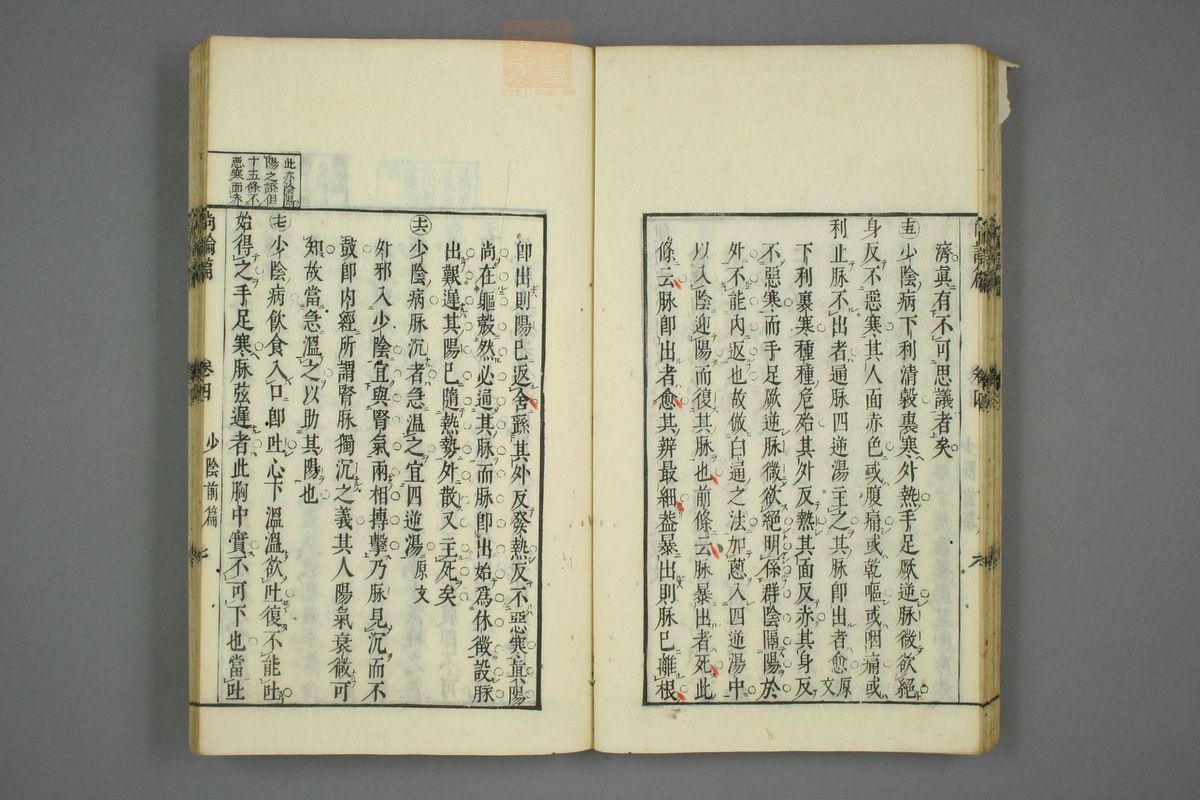 濟眞有不可思議者矣
㊄十少陰病下利清穀裏寒外熱手足厥逆脉微欲絕
身反不惡寒其人面赤色或腹痛或乾嘔或咽痛或
利止脉不出者通脉四逆湯主之其脉卽出者愈原文
下利裏寒種種危殆其外反熱其面反赤其身反
不惡寒而手足厥逆脉微欲絕明係群陰隔陽於
外不能內返也故倣白通之法加蔥入四逆湯中
以入陰迎陽而復其脉也前條云脉暴出者死此
條云脉卽出者愈其辨最細葢暴出則脉已離根
卽出則陽已返舍繇其外反發熱反不惡寒眞陽
尚在軀殼然必通其脉而脉卽出始爲休徵設脉
出艱遲其陽已隨熱勢外散又主死矣
十六少陰病脉沉者急溫之宜四逆湯原文
外邪入少陰宜與腎氣兩相搏擊乃脉見沉而不
鼓卽內經所謂腎脉獨沉之義其人陽氣衰微可
知故當急溫之以助其陽也
十七少陰病飲食入口卽吐心下溫溫欲吐復不能吐
始得之手足寒脉弦遲者此胸中實不可下也當吐
此亦陰陽
陽之證但
十五條不
惡寒面赤
尚論篇 卷四 少陰前篇 七
zysj.com.cn